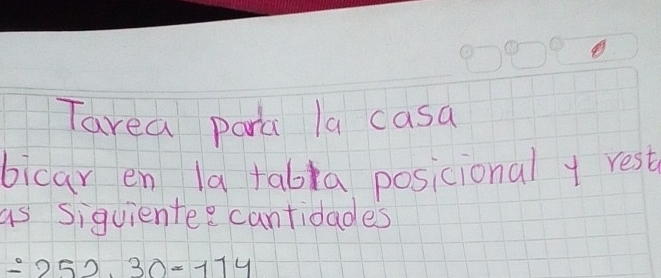 Tarea para la casa
bicar en la tabla posicional y rest
as siguientes cantidades